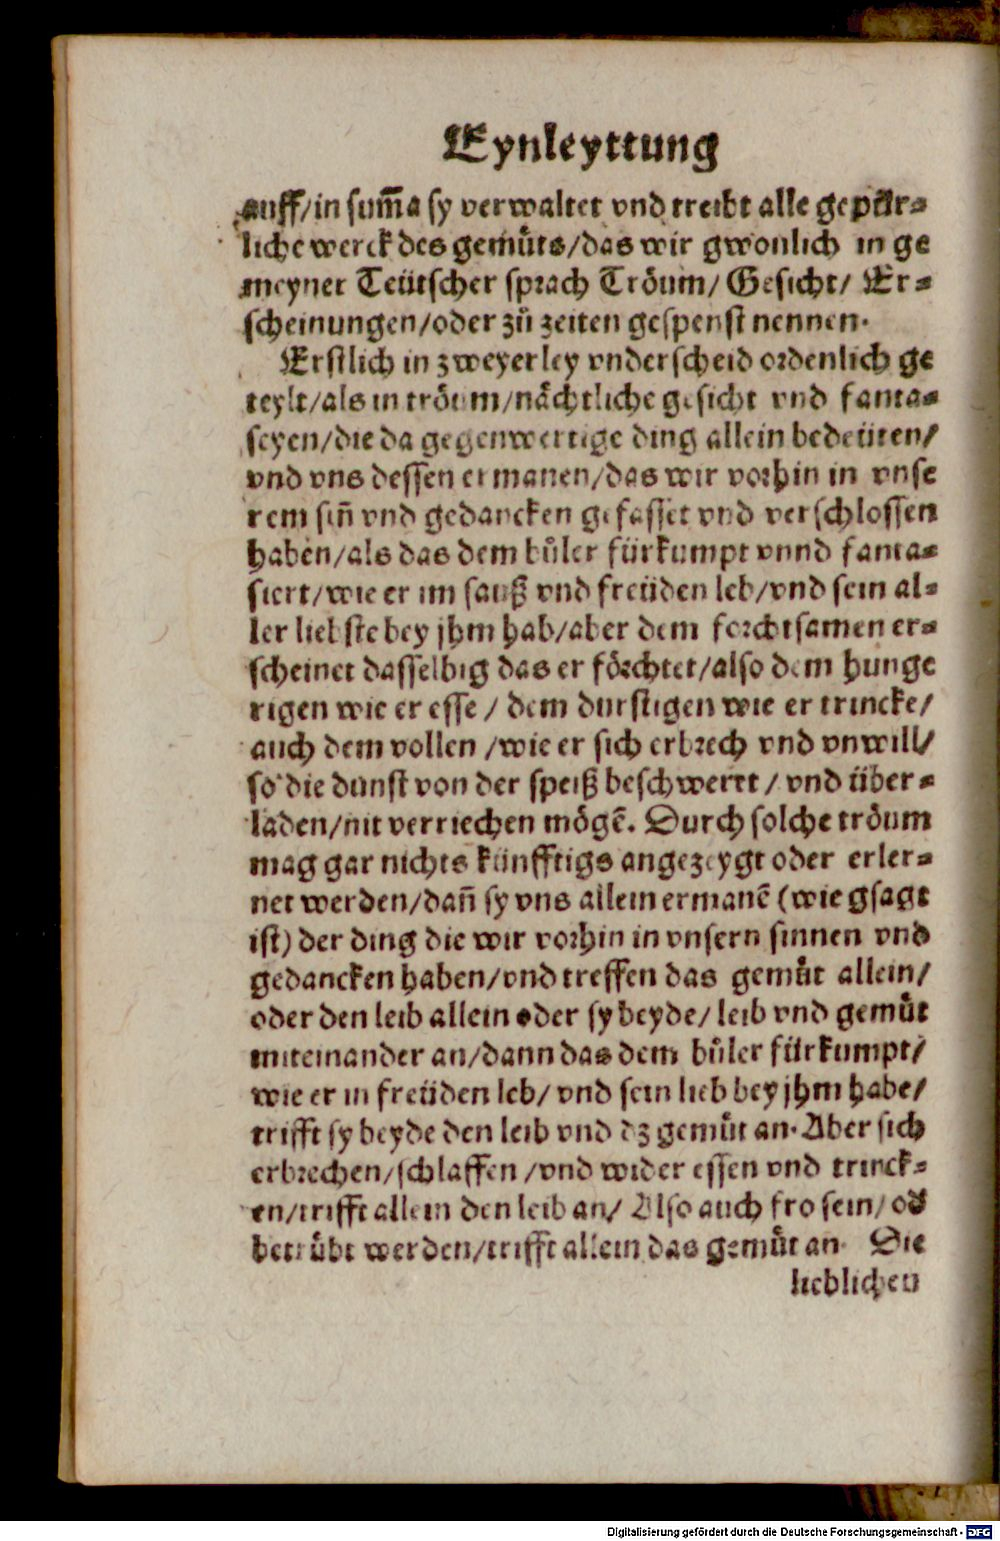 Eynleyttung
auff/in sum̃a sy verwaltet vnd treibt alle gepür⸗
liche werck des gemuͤts/das wir gwonlich in ge
meyner Teütscher sprach Tröum/ Gesicht/ Er⸗
scheinungen/oder zuͦ zeiten gespenst nennen.
Erstlich in zweyerley vnderscheid ordenlich ge
teylt/als in tröum/nächtliche gesicht vnd fanta⸗
seyen/die da gegenwertige ding allein bedeüten/
vnd vns dessen ermanen/das wir vorhin in vnse
rem siñ vnd gedancken gefasset vnd verschlossen
haben/als das dem buͦler fürkumpt vnnd fanta⸗
siert/wie er im sauß vnd freüden leb/vnd sein al⸗
ler liebste bey jhm hab/aber dem forchtsamen er⸗
scheinet dasselbig das er förchtet/also dem hunge
rigen wie er esse / dem durstigen wie er trincke/
auch dem vollen /wie er sich erbrech vnd vnwill/
so die dünst von der speiß beschwert / vnd über⸗
laden/nit verriechen mögẽ. Durch solche tröum
mag gar nichts künfftigs angezeygt oder erler⸗
net werden/dañ sy vns allein ermanẽ (wie gsagt
ist) der ding die wir vorhin in vnsern sinnen vnd
gedancken haben/vnd treffen das gemuͤt allein/
oder den leib allein oder sy beyde/ leib vnd gemuͤt
miteinander an/dann das dem buͦler fürkumpt/
wie er in freüden leb/ vnd sein lieb bey jhm habe/
trifft sy beyde den leib vnd dz gemuͤt an. Aber sich
erbrechen/schlaffen /vnd wider essen vnd trinck⸗
en/trifft allein den leib an/ Also auch fro sein/ od̓
betruͤbt werden/trifft allein das gemuͤt an. Die
lieblichen
Digitalisierung gefördert durch die Deutsche Forschungsgemeinschaft - DFG